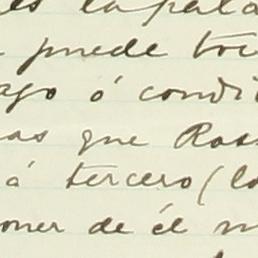 es la pala
puede toc
ago ó condi
as que Ros
á tercero (lo
oner de él n